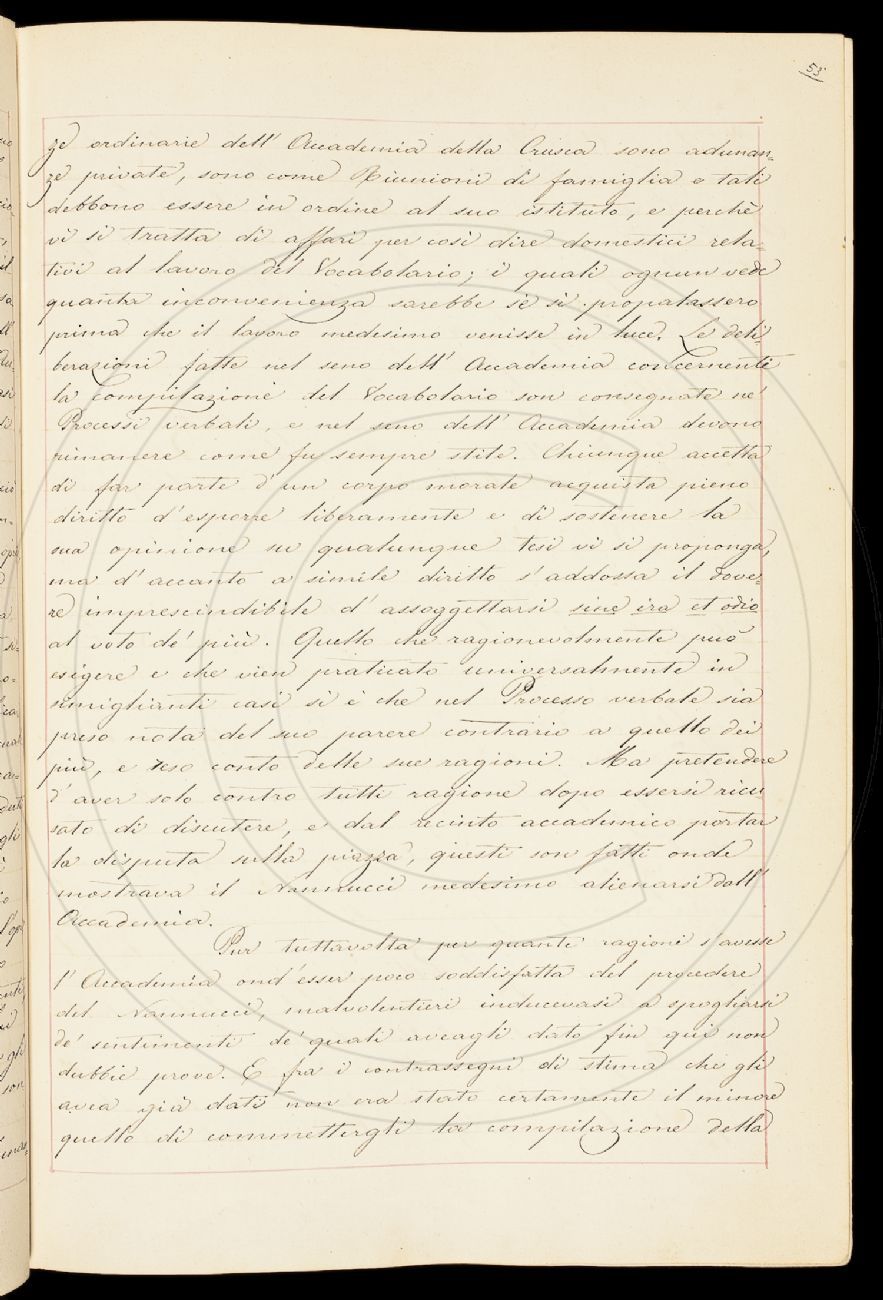 53
ze ordinarie dell' Accademia della Crusca sono adunan=
ze private, sono come Riunioni di famiglia e tali
debbono essere in ordine al suo istituto, e perchè
vi si tratta di affari per così dire domestici rela=
tivi al lavoro del Vocabolario; i quali ognun vede
quanta inconvenienza sarebbe se si propalassero
prima che il lavoro medesimo venisse in luce. Le deli=
berazioni fatte nel seno dell' Accademia concernenti
la Compilazione del Vocabolario son consegnate ne'
Processi verbali, e nel seno dell' Accademia devono
rimanere come fu sempre stile. Chiunque accetta
di far parte d'un corpo morale acquista pieno
diritto d'esporre liberamente e di sostenere la
sua opinione su qualunque tesi vi si proponga,
ma d'accanto a simile diritto s'addossa il dove=
re imprescindibile d'assoggettarsi sine ira et odio
al voto de' più. Quello che ragionevolmente può
esigere e che vien praticato universalmente in
simiglianti casi si è che nel Processo verbale sia
preso nota del suo parere contrario a quello dei
più, e reso conto delle sue ragioni. Ma pretendere
d'aver solo contro tutti ragione dopo essersi ricu
sato di discutere, e dal recinto accademico portar
la disputa sulla piazza, questi son fatti onde
mostrava il Nannucci medesimo alienarsi dall'
Accademia.
Pur tuttavolta per quante ragioni s'avesse
l'Accademia ond'esser poco soddisfatta del procedere
del Nannucci, malvolentieri inducevasi a spogliarsi
de' sentimenti de' quali aveagli dato fin qui non
dubbie prove. E fra i contrassegni di stima che gli
avea già dati non era stato certamente il minore
quello di commettergli la compilazione della